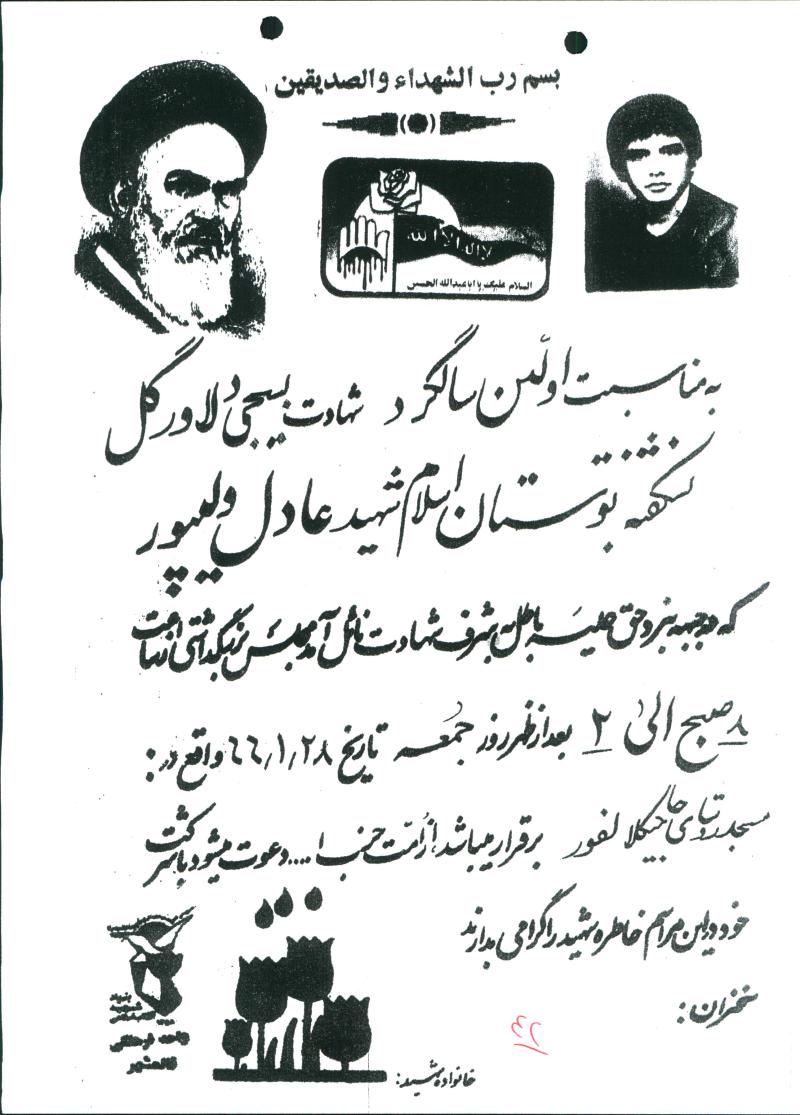 بسم رب الشهداء والصدیقین
لا اله الا الله
السلام علیک یا اباعبدالله الحسین
به مناسبت اولین سالگرد شهادت بسیجی دلاور گل
شکفته بوستان اسلام شهید عادل ولیپور
که در جبهه نبرد حق علیه باطل بشرف شهادت نائل آمد مجلس بزرگداشتی از ساعت
۸ صبح الی ۲ بعد از ظهر روز جمعه تاریخ ۶۶/۱/۲۸ واقع در:
مسجد روستای حاجیکلا لفور برقرار میباشد، از امت حزب ا.... دعوت میشود با شرکت
خود در این مراسم خاطره شهید را گرامی بدارند
سخنران:
بنیاد
شهید
واحد فرهنگی
قائمشهر
خانواده شهید: